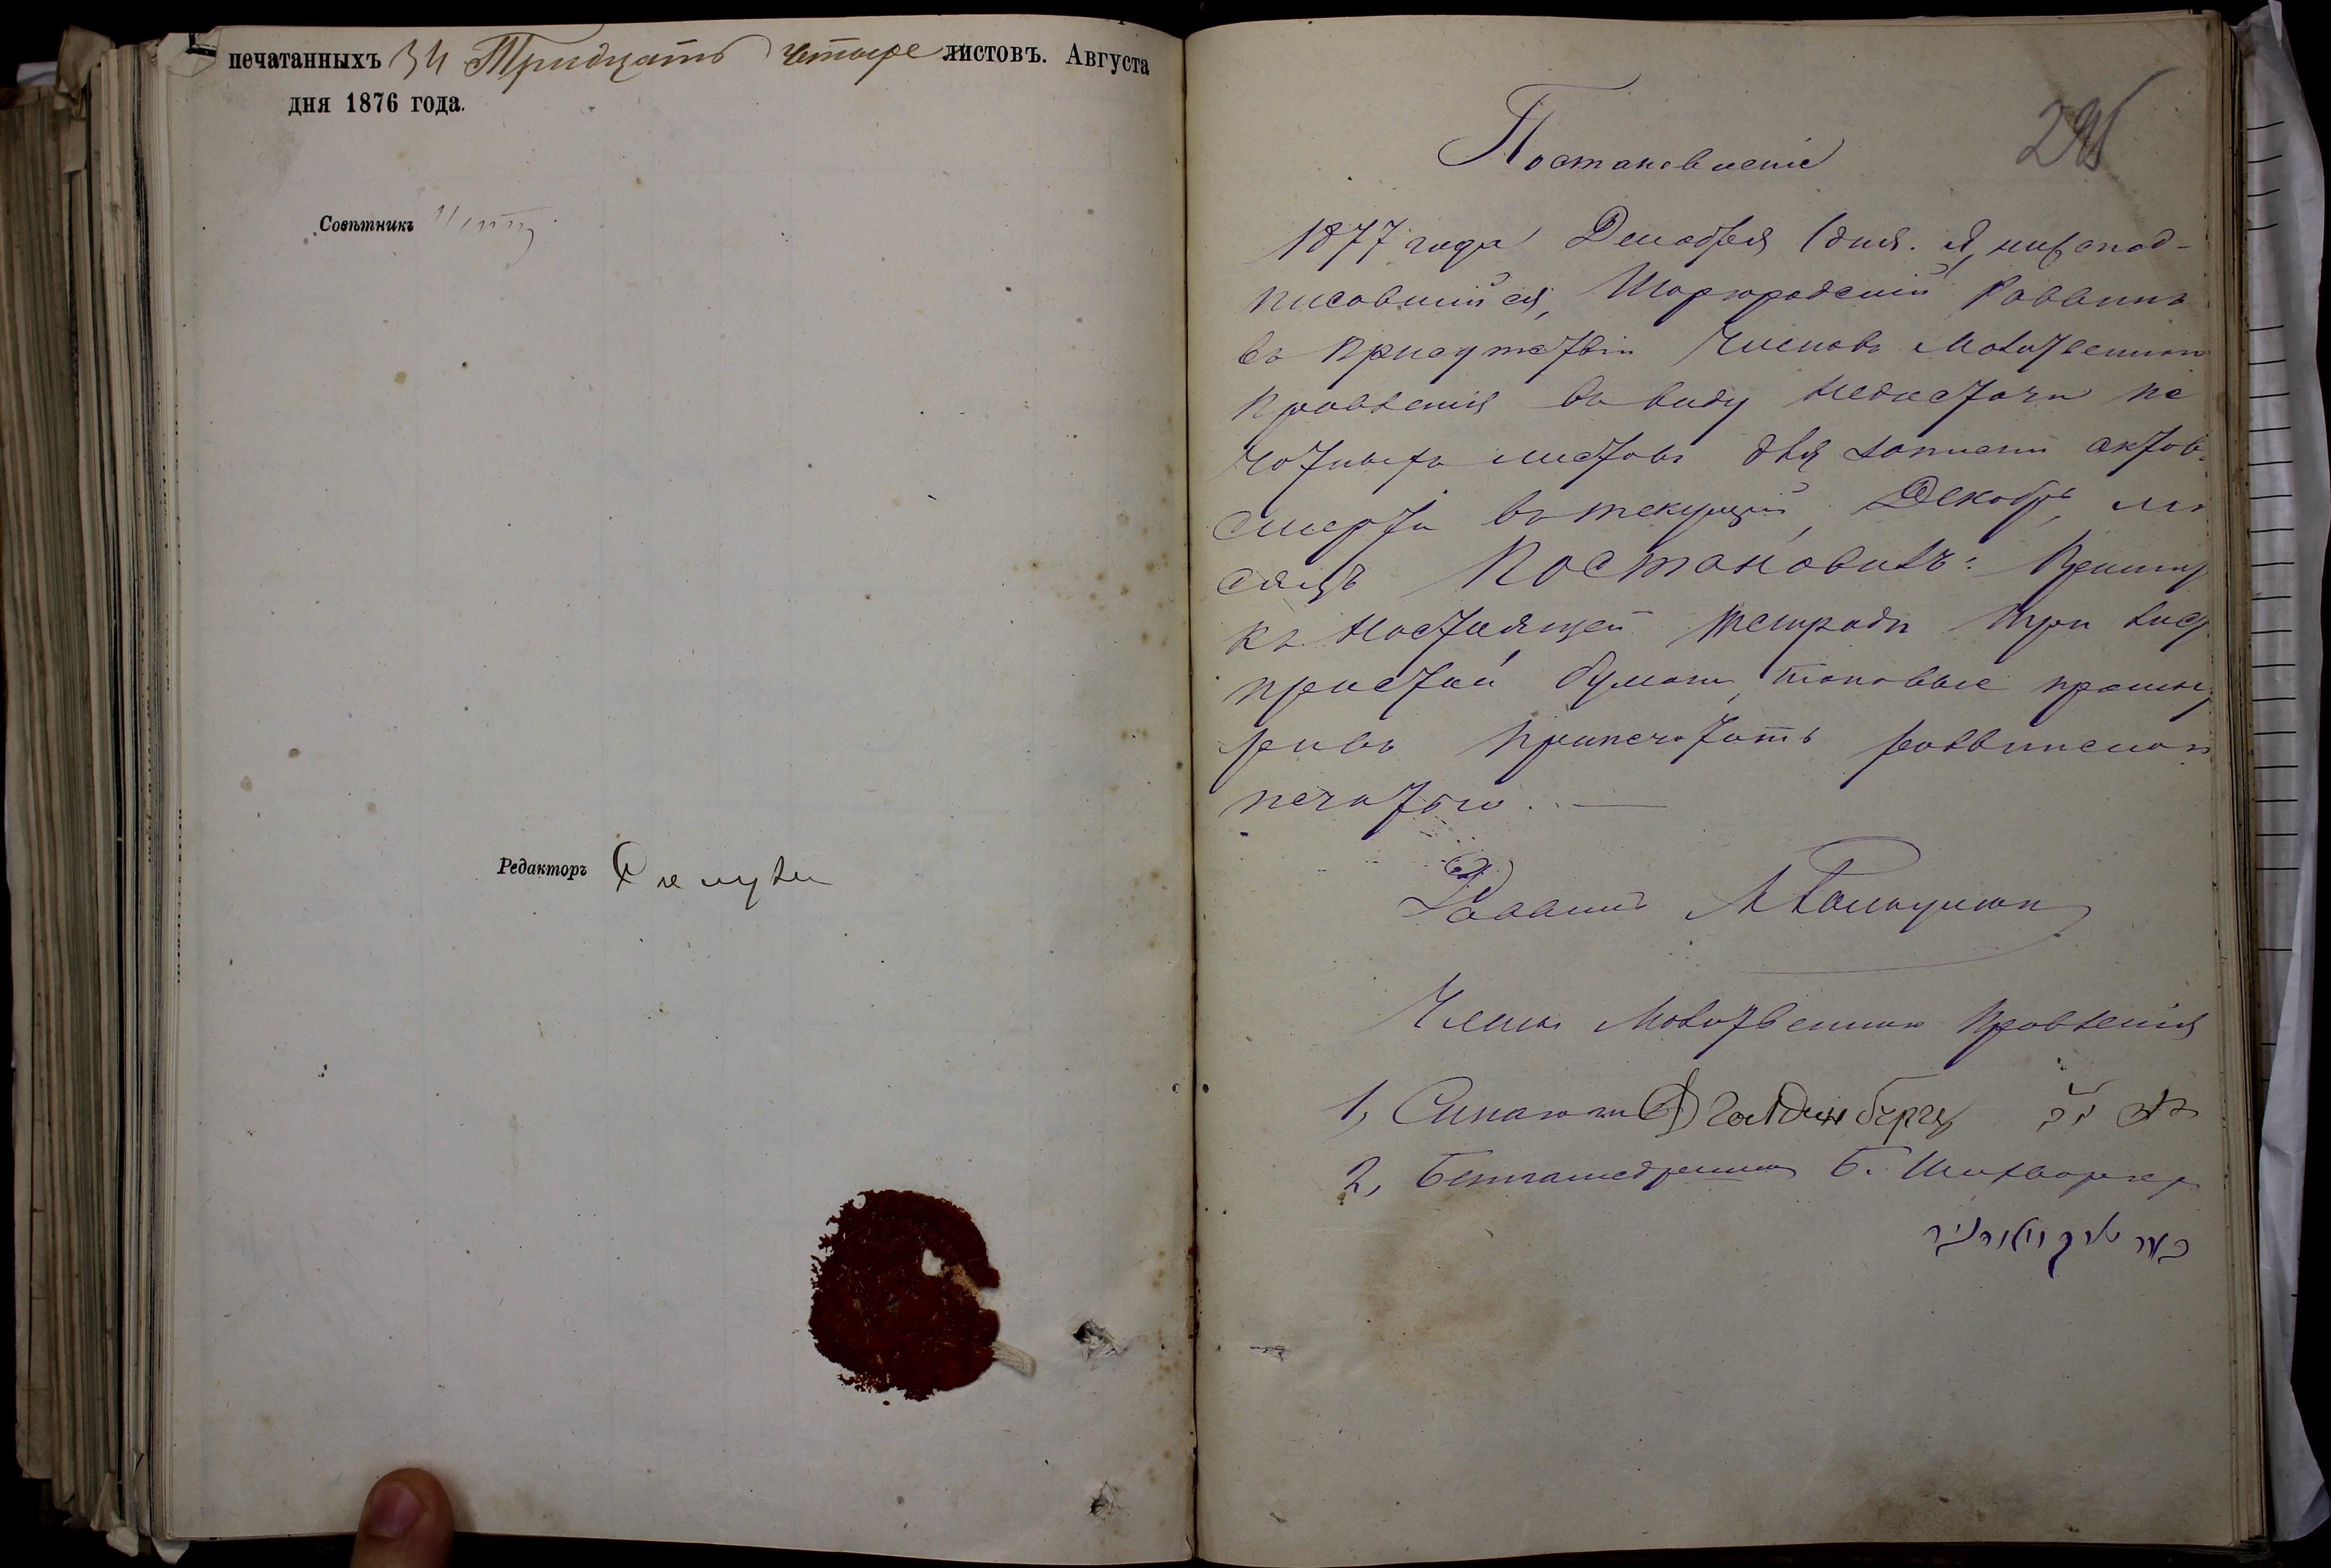 печатанныхъ 34 Тридцать четыре листовъ. Августа
дня 1876 года.
Совѣтникъ
Редакторъ
295
Постановленіе
1877 года Декабря 1 дня. Я, нижепод-
писавшійся, Шаргородскій Раввинъ
въ присутствіи Членовъ Молитвенном
Правленія въ виду недостачи пе
чатныхъ листовъ для записи актовъ
смерти въ текущій, Декабрь, мѣ
сяцъ Постановилъ:
къ настоящей тетради три лист
простой бумаги, таковые прошну
ровъ припечатать раввинском
печатью. —
Раввинъ
Члены Молитвеннаго Правленія
1, Синагоги Голденбергъ
2, Бетгамедрешъ Б.